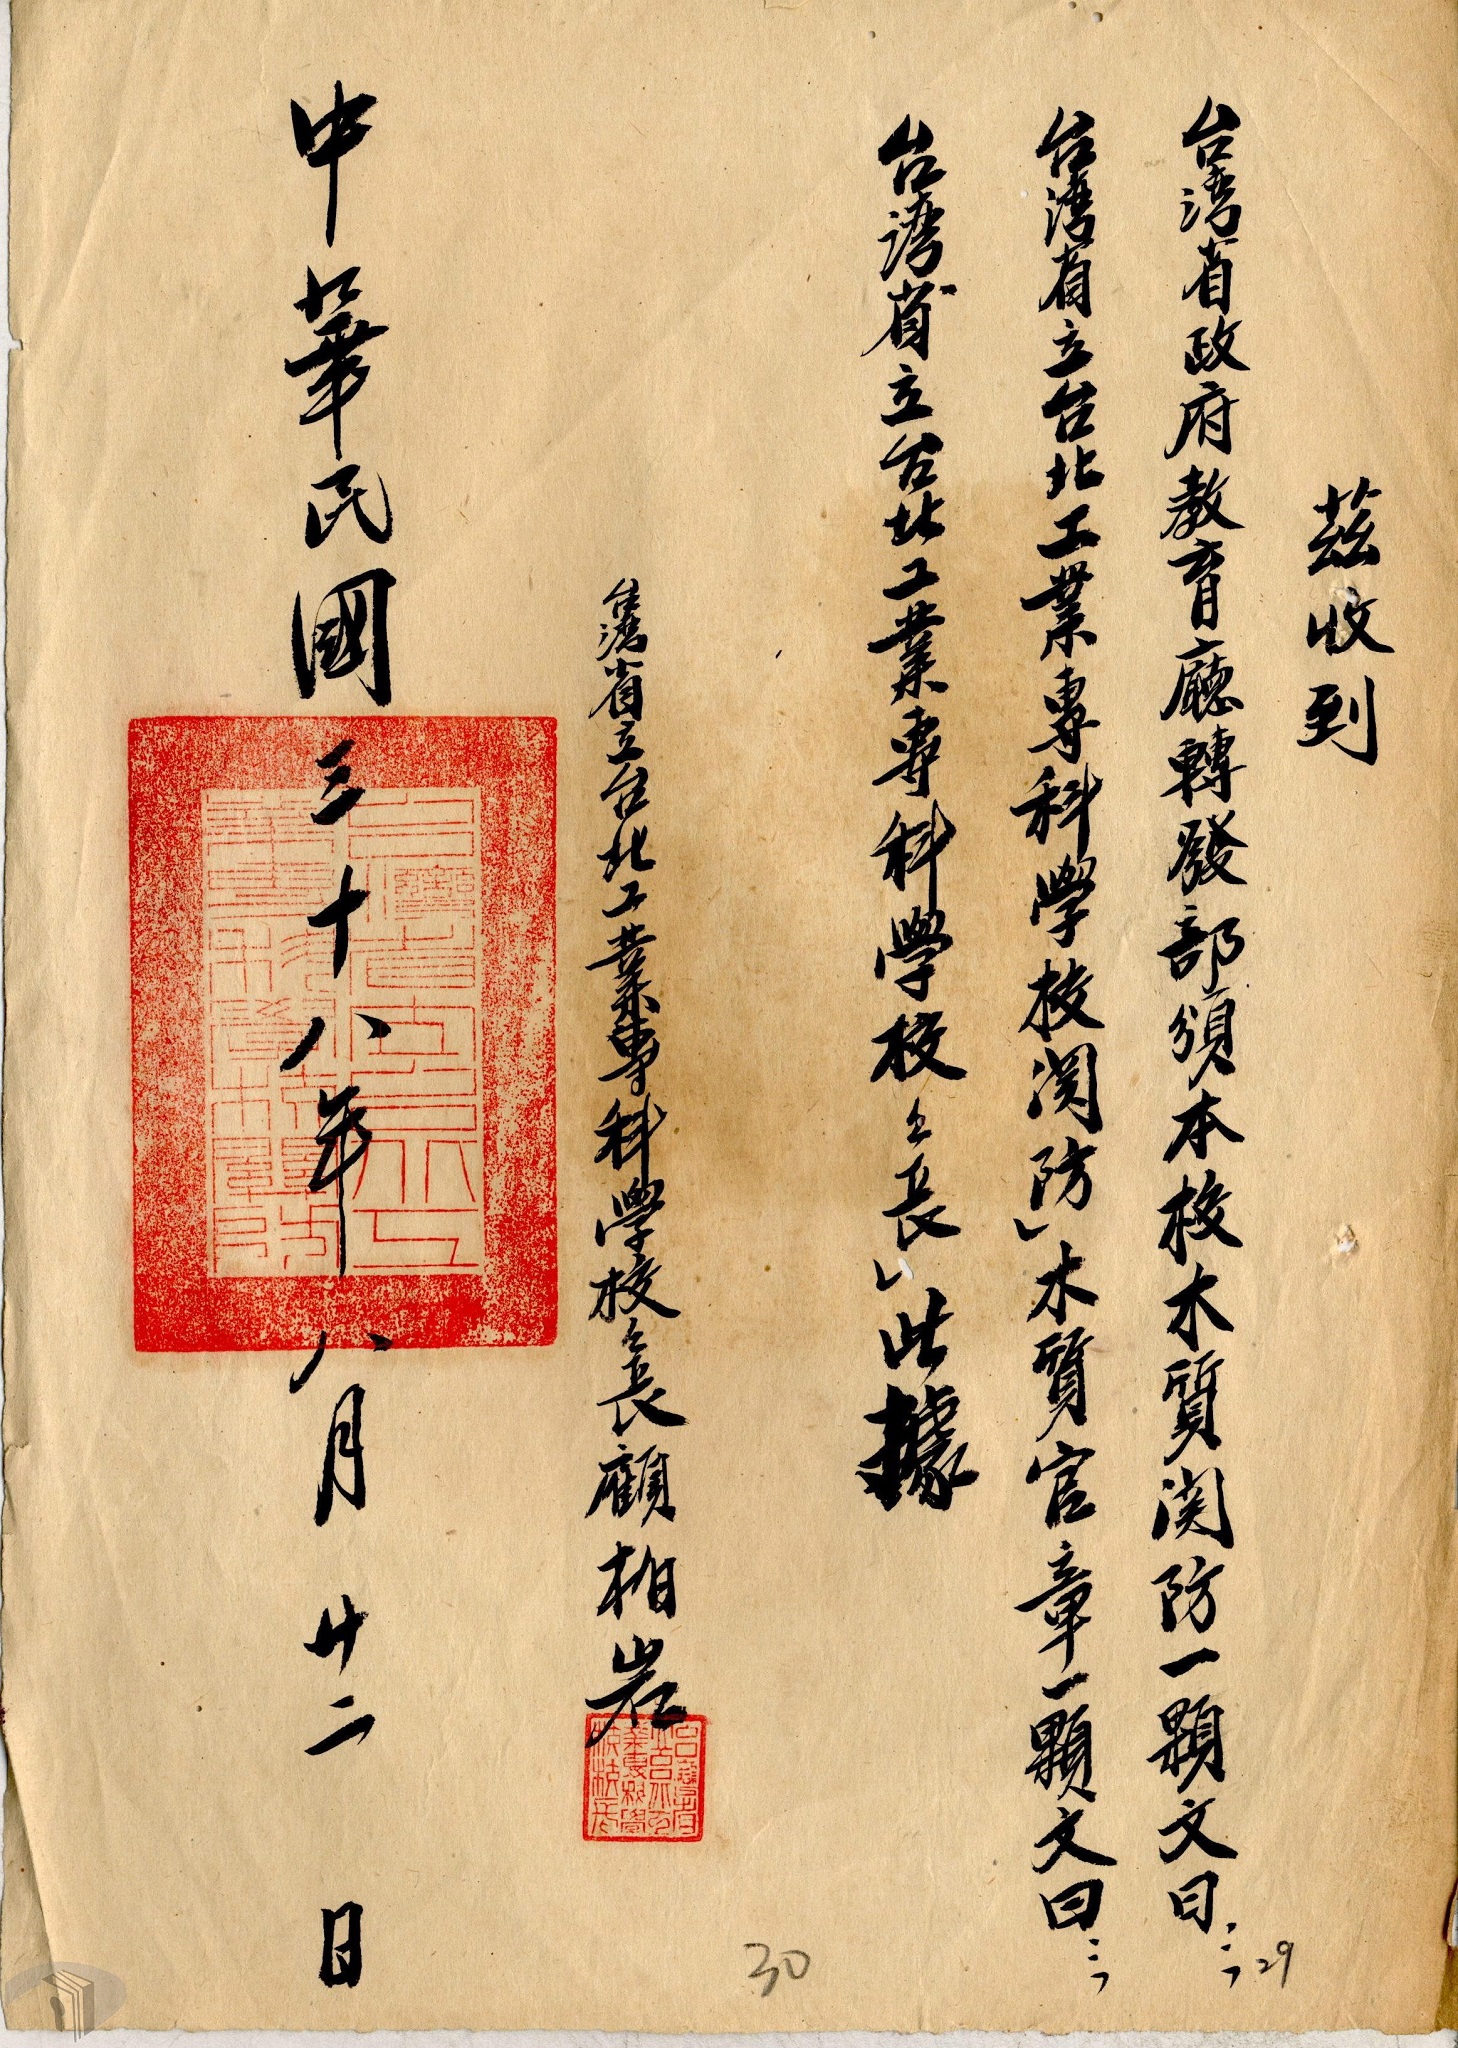 茲收到
台湾省政府教育廳轉發部頒本校木質関防一顆文曰：「
台湾省立台北工業專科學校関防」木質官章一顆文曰：「
台湾省立台北工業專科學校々長」此據
台灣省立台北工業專科學校々長顧柏岩
中華民國三十八年八月廿二日
29
30